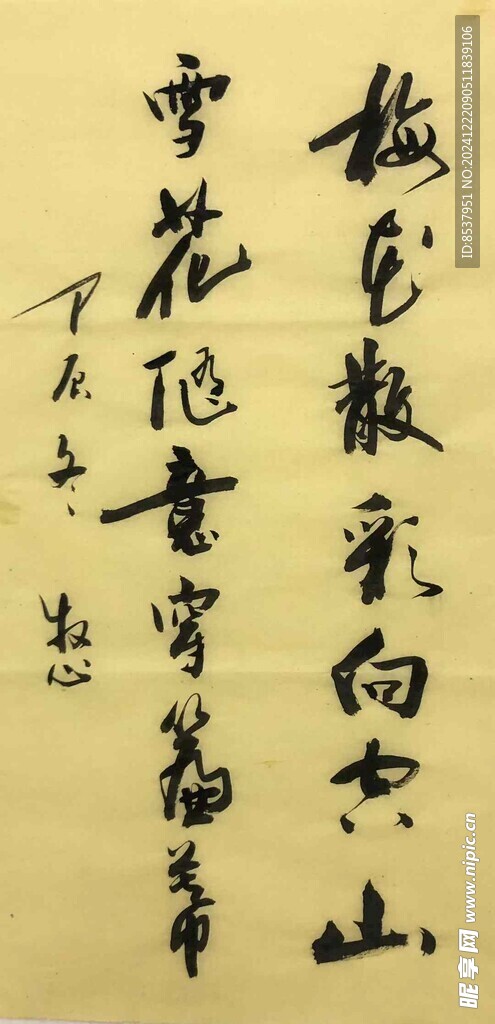 梅花散彩向空山
雪花随意穿簾幕
甲辰冬 牧心
ID:8537951 NO:20241222090511839106
昵享网 www.nipic.cn